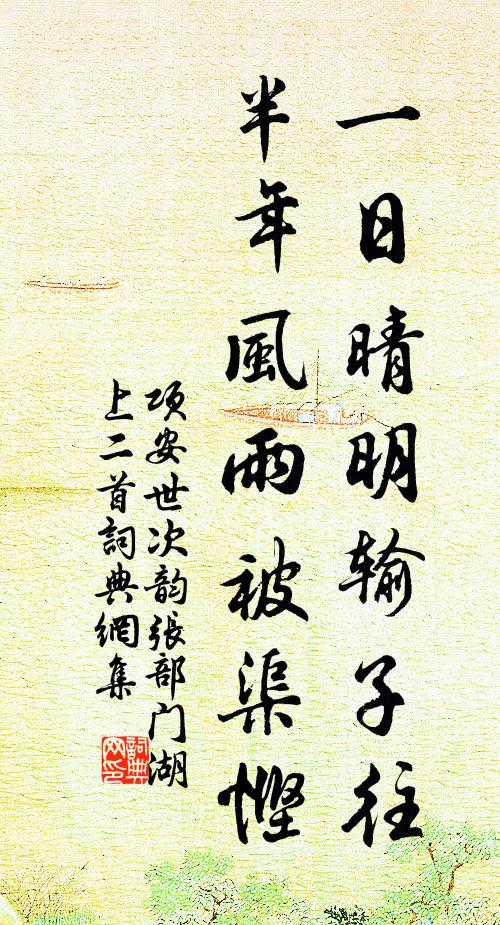 一日晴明输子往
半年風雨被渠慳
项安世次韵張部门湖
上二首詞典網集